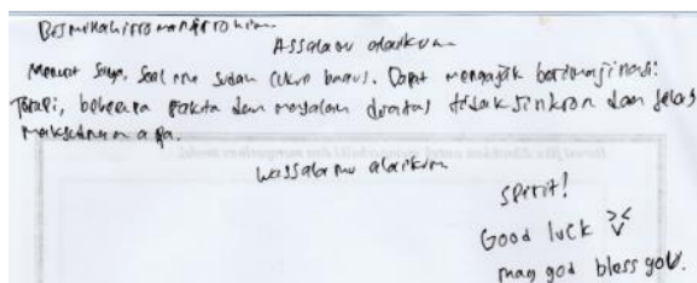 Bismillahirromanirrohim
Assalamu alaikum
Menurut saya, Soal ini sudah cukup bagus. Dapat mengajak berimajinasi.
Tetapi, beberapa fakta dan masalah diatas tidak sinkron dan jelas
maksudnya apa.
Wassalamu alaikum
spirit!
Good luck ><
may god bless you.